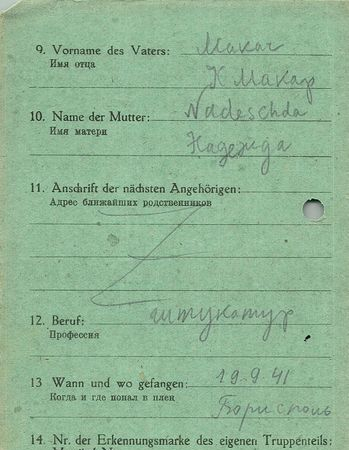 9. Vorname des Vaters: Макач
Имя отца
К Макар
10. Name der Mutter: Nadeschda
Имя матери
Надежда
11. Anschrift der nächsten Angehörigen:
Адрес ближайших родственников
12. Beruf: штукатур
Профессия
13 Wann und wo gefangen: 19.9.41
Когда и где попал в плен
Борисполь
14. Nr. der Erkennungsmarke des eigenen Truppenteils: